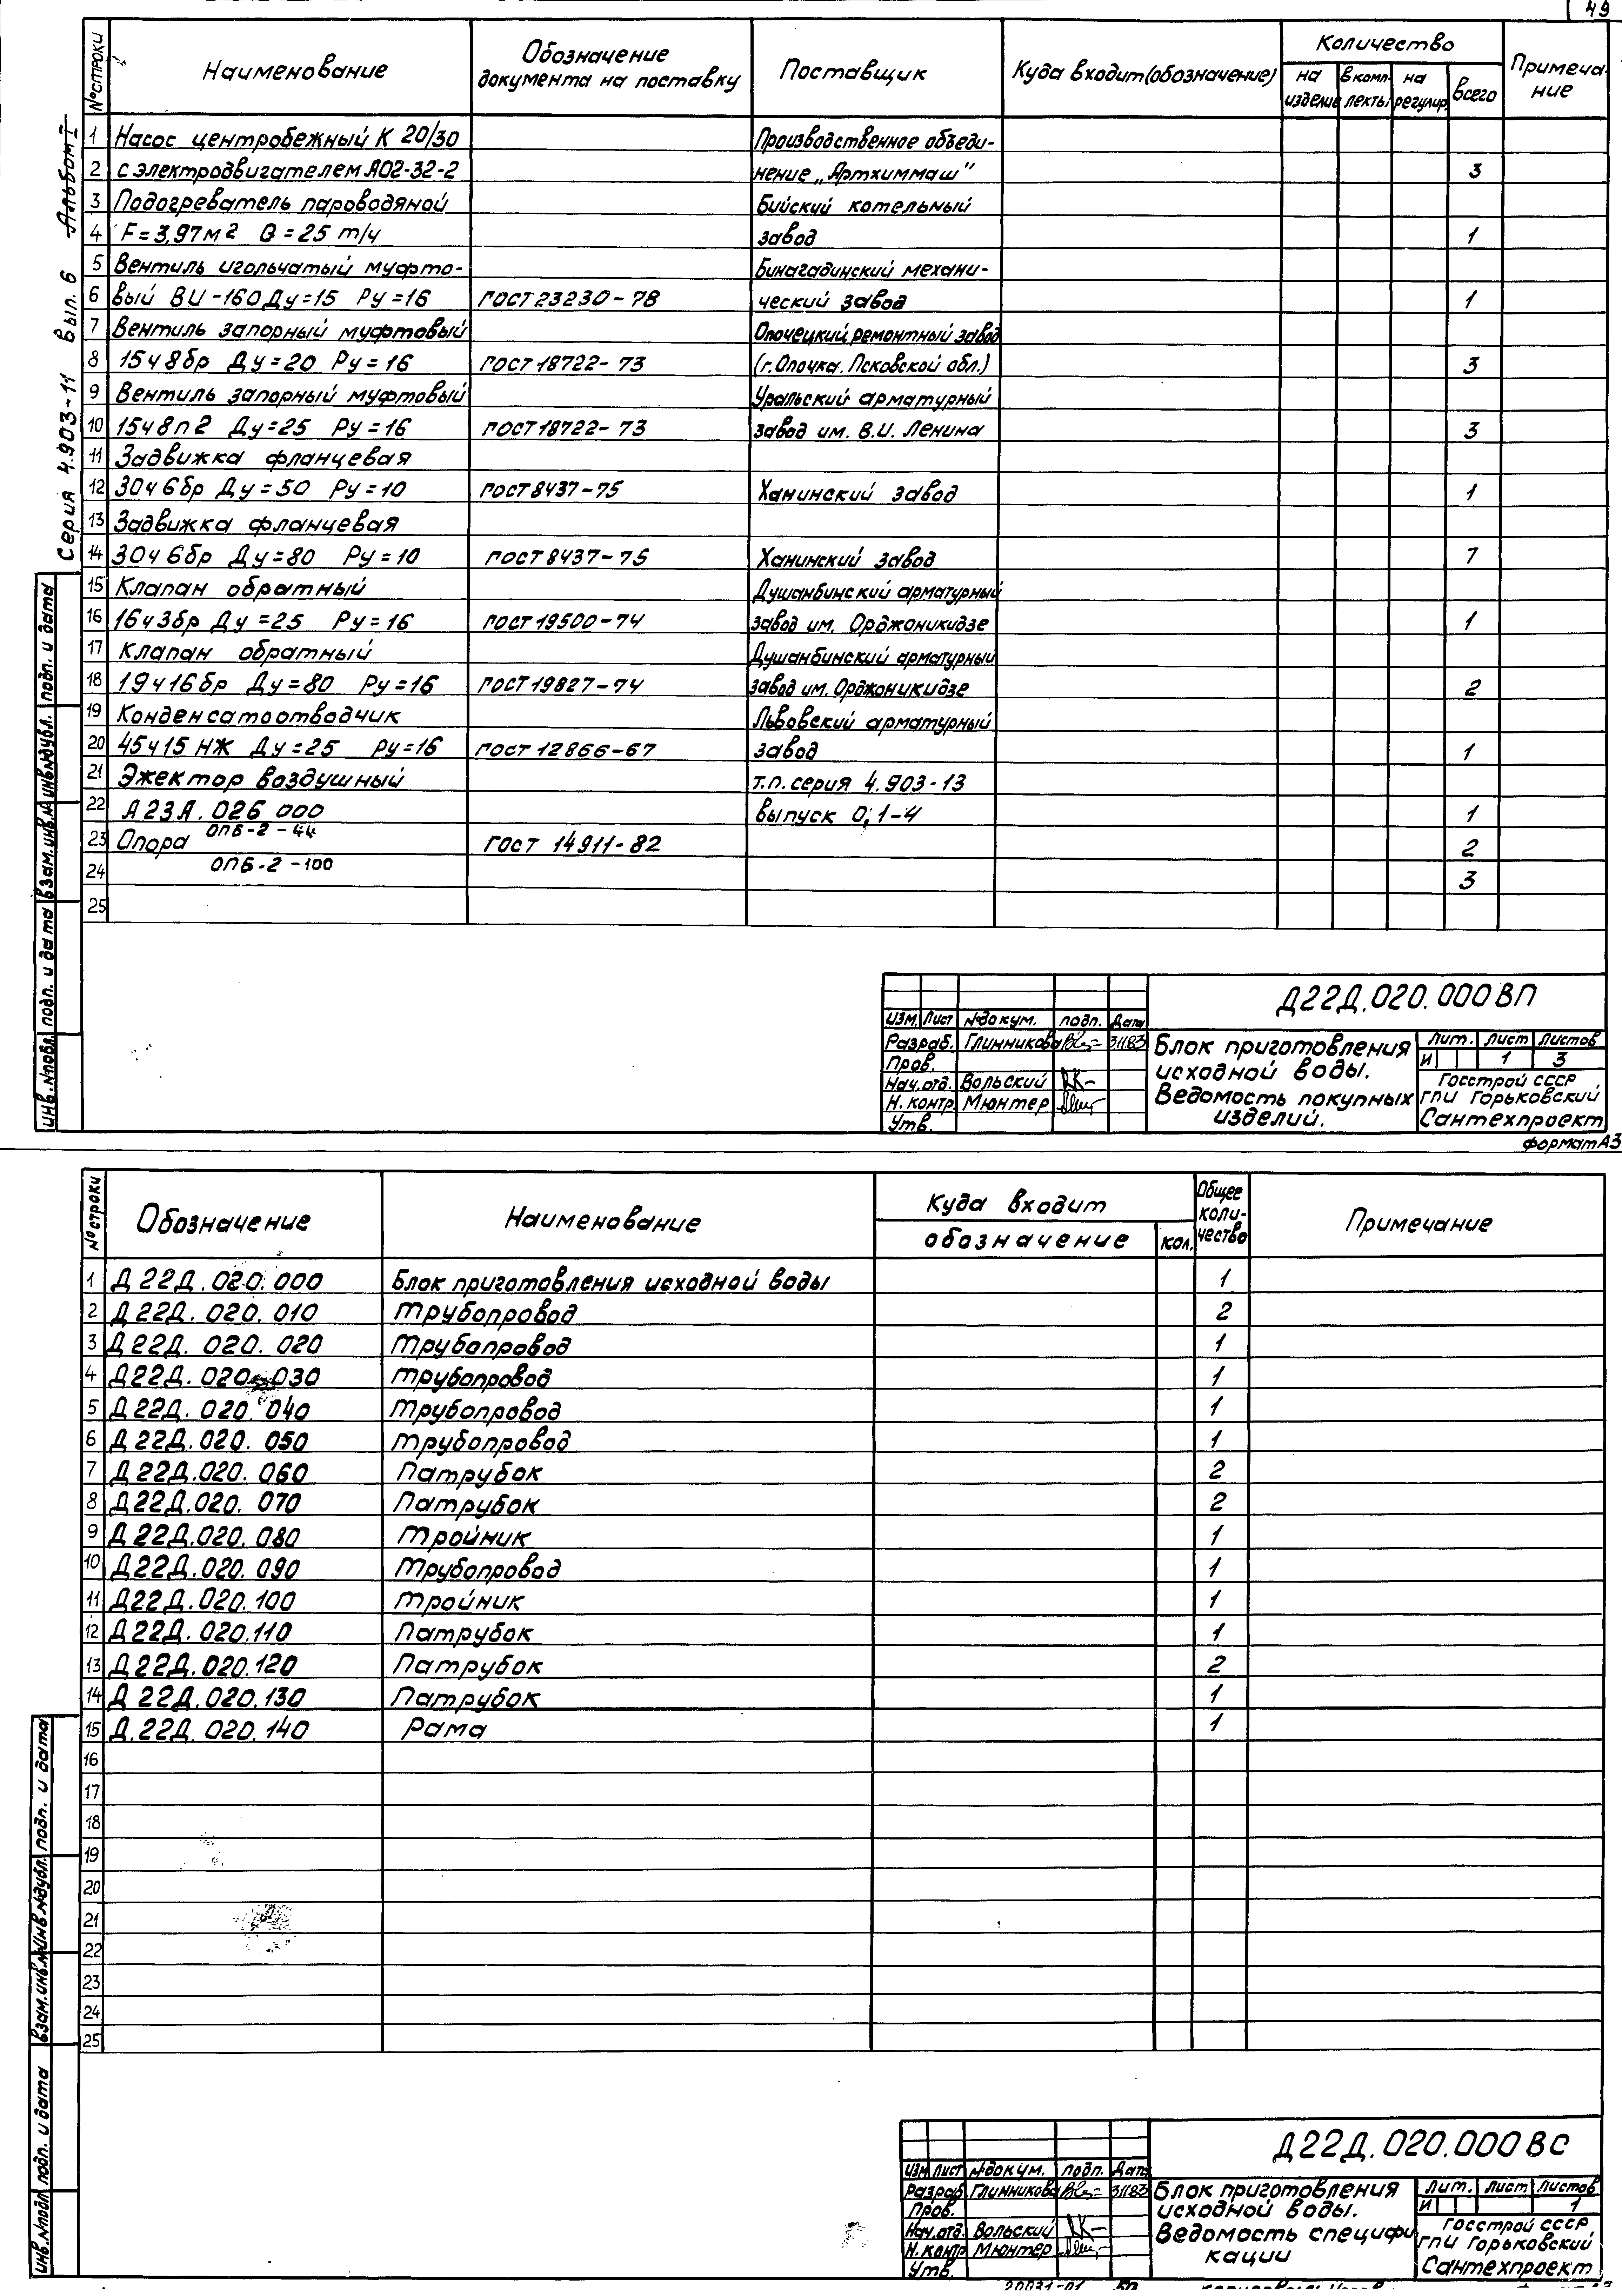 49
Серия 4.903-11 Вып. 6 Альбом I
№ строки
Наименование
Обозначение документа на поставку
Поставщик
Куда входит (обозначение)
Количество
на изделие
в комплекты
на регулир.
всего
Примечание
1 Насос центробежный К 20/30 Производственное объеди-
2 с электродвигателем АО2-32-2 нение „Артхиммаш" 3
3 Подогреватель пароводяной Бийский котельный
4 F=3,97м2 G=25 т/ч завод 1
5 Вентиль игольчатый муфто- Бинагадинский механи-
6 вый ВИ-160 Ду=15 Ру=16 ГОСТ 23230-78 ческий завод 1
7 Вентиль запорный муфтовый Опочецкий ремонтный завод
8 15ч8бр Ду=20 Ру=16 ГОСТ 18722-73 (г. Опочка. Псковской обл.) 3
9 Вентиль запорный муфтовый Уральский арматурный
10 15ч8п2 Ду=25 Ру=16 ГОСТ 18722-73 завод им. В.И. Ленина 3
11 Задвижка фланцевая
12 30ч6бр Ду=50 Ру=10 ГОСТ 8437-75 Ханинский завод 1
13 Задвижка фланцевая
14 30ч6бр Ду=80 Ру=10 ГОСТ 8437-75 Ханинский завод 7
15 Клапан обратный Душанбинский арматурный
16 16ч3бр Ду=25 Ру=16 ГОСТ 19500-74 завод им. Орджоникидзе 1
17 Клапан обратный Душанбинский арматурный
18 19ч16бр Ду=80 Ру=16 ГОСТ 19827-74 завод им. Орджоникидзе 2
19 Конденсатоотводчик Львовский арматурный
20 45ч15НЖ Ду=25 Ру=16 ГОСТ 12866-67 завод 1
21 Эжектор воздушный т.п. серия 4.903-13
22 А23А.026 000 выпуск 0; 1-4 1
23 Опора ОПБ-2-44 ГОСТ 14911-82 2
24 ОПБ-2-100 3
25
инв. № подл. подп. и дата взам. инв. № инв. № дубл. подп. и дата
Д22Д.020.000 ВП
Изм. Лист № докум. подп. Дата
Разраб. Глинникова 31183
Пров.
Нач. отд. Вольский
Н. контр Мюнтер
Утв.
Блок приготовления
исходной воды.
Ведомость покупных
изделий.
Лит. Лист Листов
И 1 3
Госстрой СССР
ГПИ Горьковский
Сантехпроект
формат А3
№ строки
Обозначение
Наименование
Куда входит
обозначение
кол.
Общее количество
Примечание
1 Д22Д.020.000 Блок приготовления исходной воды 1
2 Д22Д.020.010 Трубопровод 2
3 Д22Д.020.020 Трубопровод 1
4 Д22Д.020.030 Трубопровод 1
5 Д22Д.020.040 Трубопровод 1
6 Д22Д.020.050 Трубопровод 1
7 Д22Д.020.060 Патрубок 2
8 Д22Д.020.070 Патрубок 2
9 Д22Д.020.080 Тройник 1
10 Д22Д.020.090 Трубопровод 1
11 Д22Д.020.100 Тройник 1
12 Д22Д.020.110 Патрубок 1
13 Д22Д.020.120 Патрубок 2
14 Д22Д.020.130 Патрубок 1
15 Д.22Д.020.140 Рама 1
16
17
18
19
20
21
22
23
24
25
инв. № подл подп. и дата взам. инв. № инв. № дубл. подп. и дата
Д22Д.020.000 ВС
Изм Лист № докум. подп. Дата
Разраб. Глинникова 31183
Пров.
Нач. отд. Вольский
Н. контр Мюнтер
Утв.
Блок приготовления
исходной воды.
Ведомость специфи
кации
Лит. Лист Листов
И 1
Госстрой СССР
ГПИ Горьковский
Сантехпроект
20031-01 50